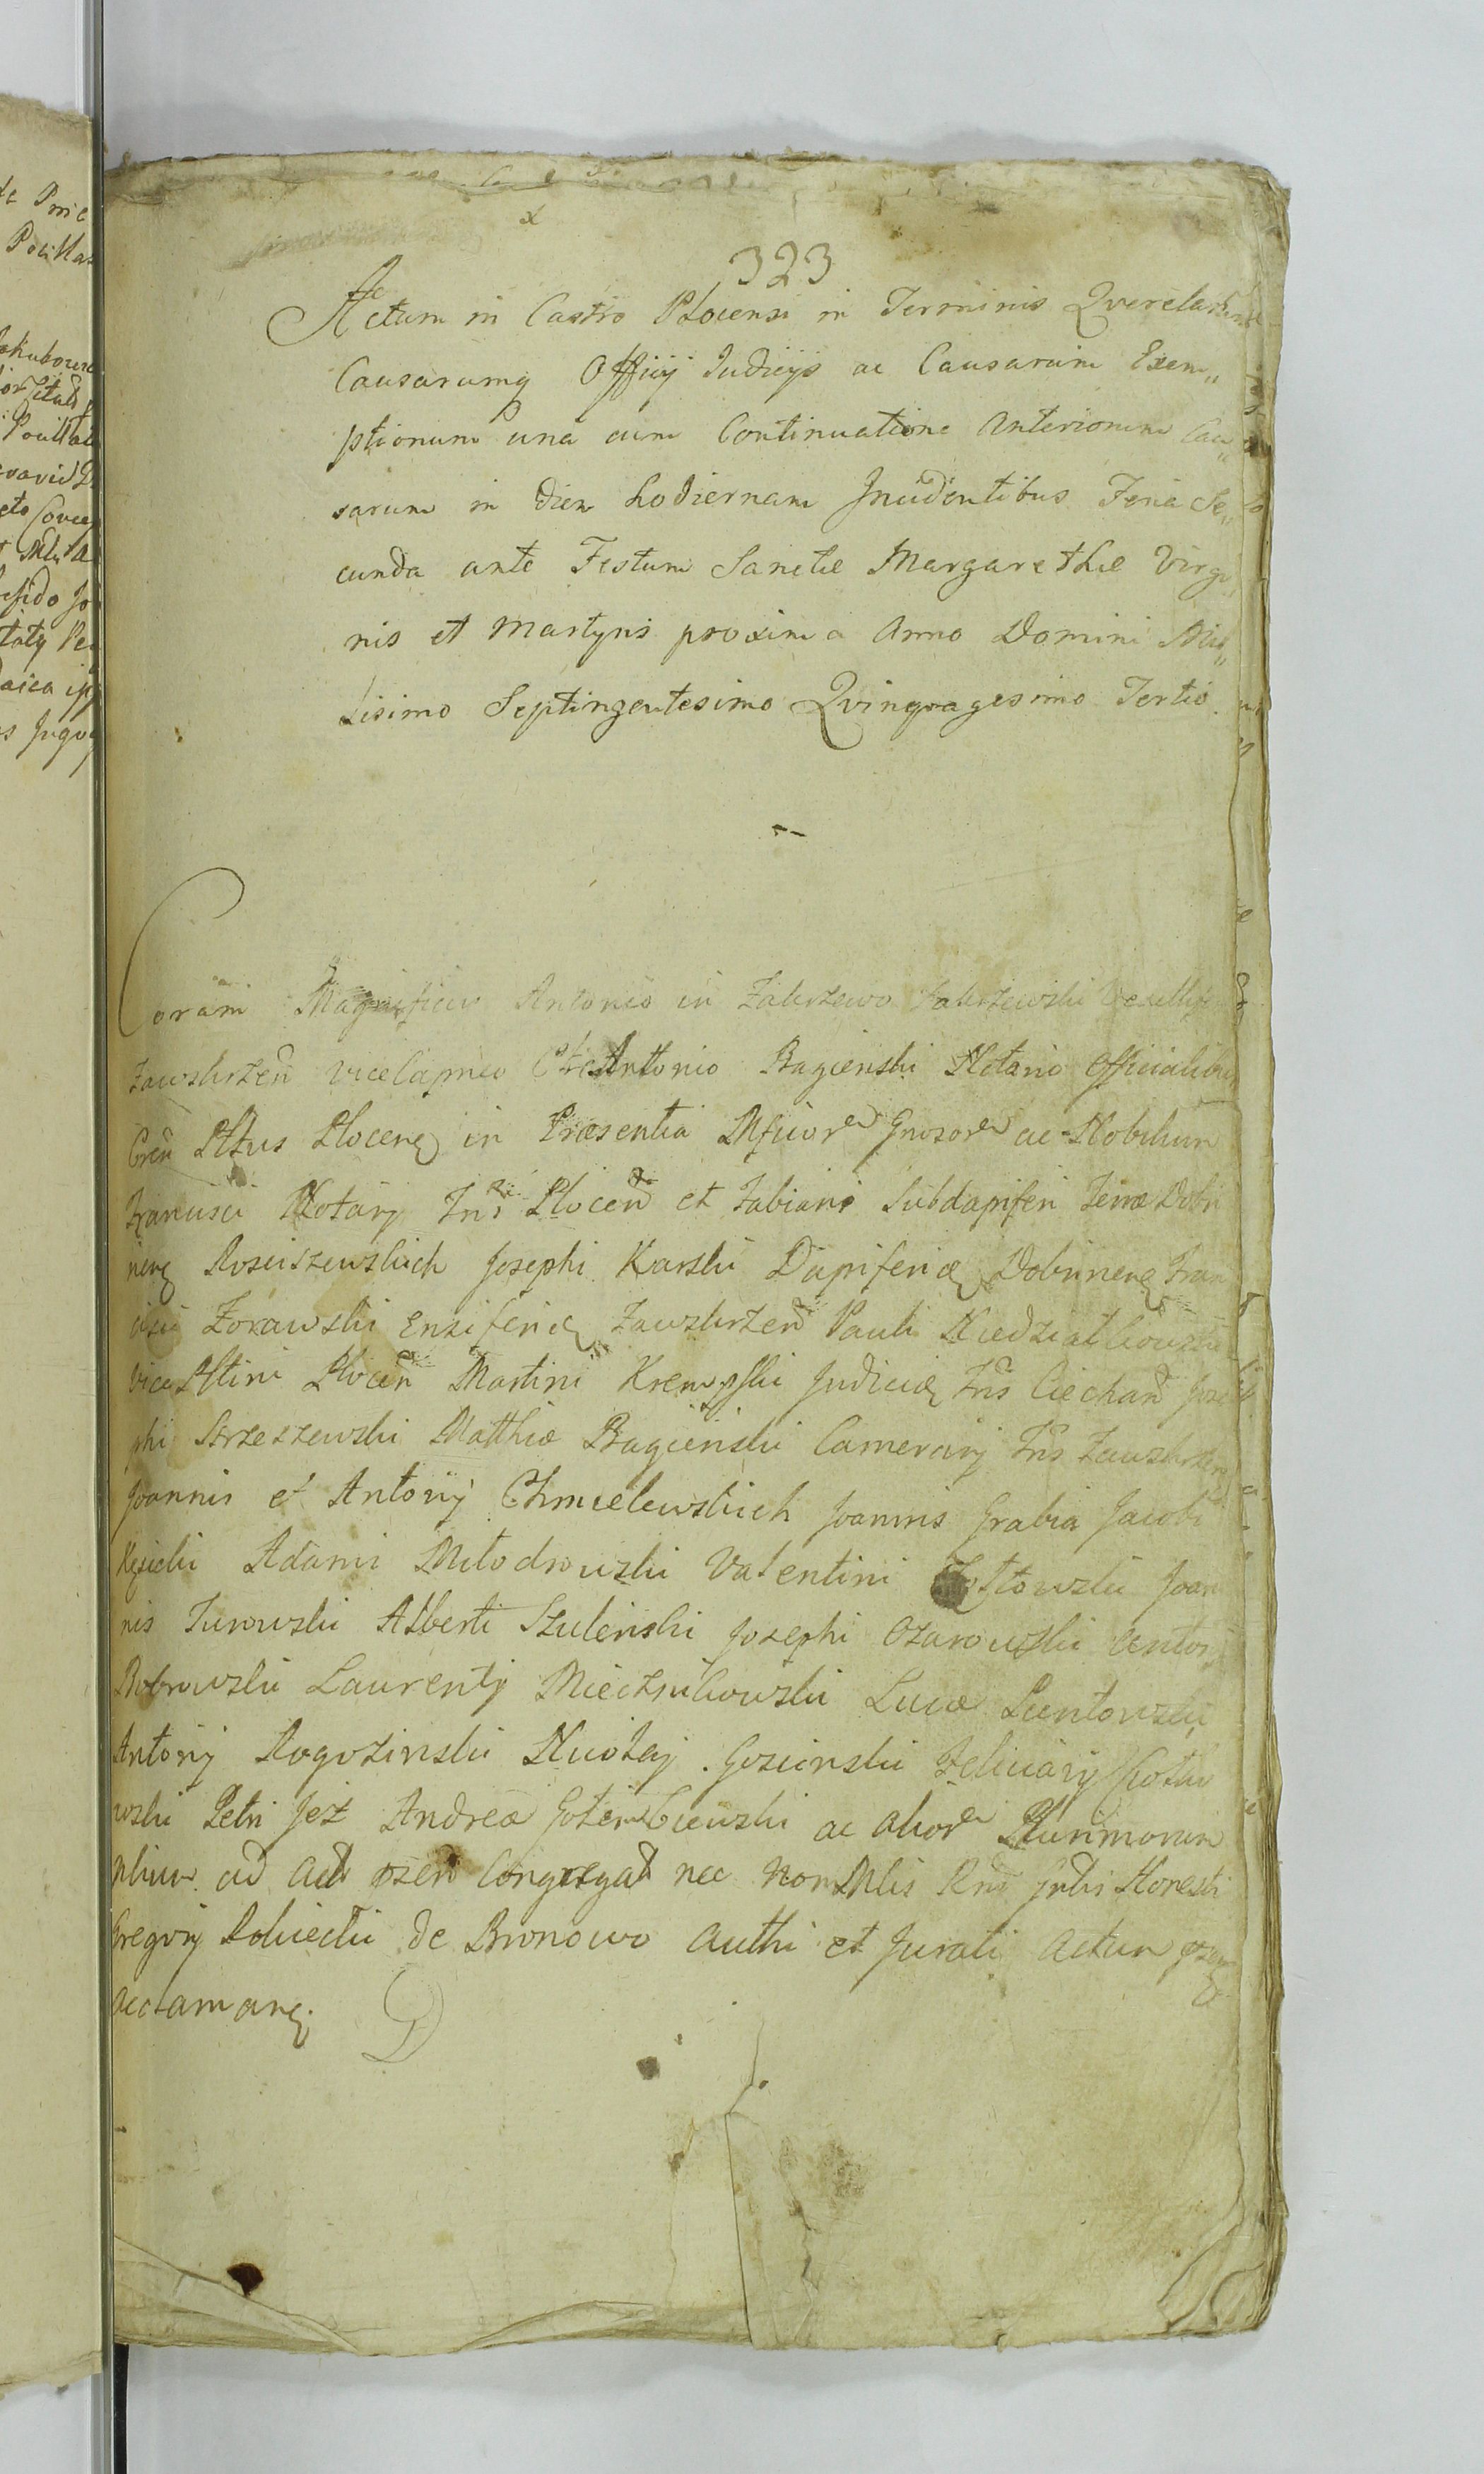 323
Actum in Castro Plocensi in Terminis Qverelarum
Causarumq Officij Judicijs ac Causarum Exem„
ptionum una cum Continuatione Anteriorum Cau„
sarum in diem hodiernam Incidentibus Feria Se„
cunda ante Festum Sanctæ Margarethæ Virgi„
nis et Martyris proxima Anno Domini Mil„
lisimo Septingentesimo Qvinqvagesimo Tertio.
Coram Magnifico Antonio in Zakrzewo Zakrzewski Vexillife
Zawskrzen Vicecapneo Antonio Bagienski Notario Officialibus
Cren Pltus Plocenq in Præsentia Mficor Gnosor ac Nobilium
Francisci Notarij Tris Plocen et Fabiani Subdapiferi Terræ Dobri
nenq Rosciszewskich Josephi Karski Dapiferidæ Dobrinenq Fran
cisci Zorawski Ensiferidæ Zawskrzen Pauli Niedzialkowski
Vice Pltini Plocen Martini Krempski Judicidæ Tris Ciechan Jose
phi Strzeszewski Matthiæ Bagienski Camerarij Tris Zawskrzen
Joannis et Antonij Chmielewskich Joannis Grabia Jacobi
Kęsicki Adami Młodrowski Valentini Joan
nis Turowski Alberti Szulenski Josephi Ozarowski Anton
Bobrowski Laurentij Miecznikowski Lucæ Luntowski
Antonij Rogozinski Nicolaj Goscinski Feliciani
wski Petri Jeż Andreæ Gołembiewski ac alior Plurimorum
Nlium ad act psen Congregat nec non Mlis Rni Jntis Honesti
Gregorij Robiecki de Bronowo Authi et Jurati Actum psen
acclamanq.